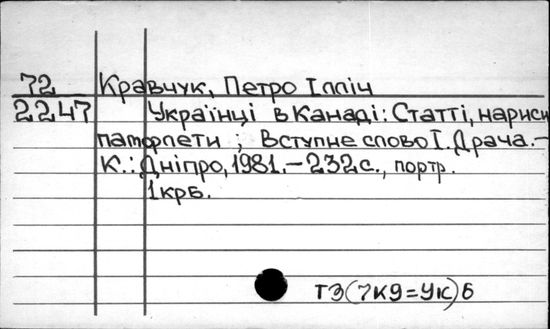 72 Кравчук, Петро Ілліч
2247 Українці в Канаді: Статті, нариси
памфлети; Вступне слово І. Драча.–
К.: Дніпро, 1981.–232с., портр.
1крб.
ТЗ(7К9=УК)6